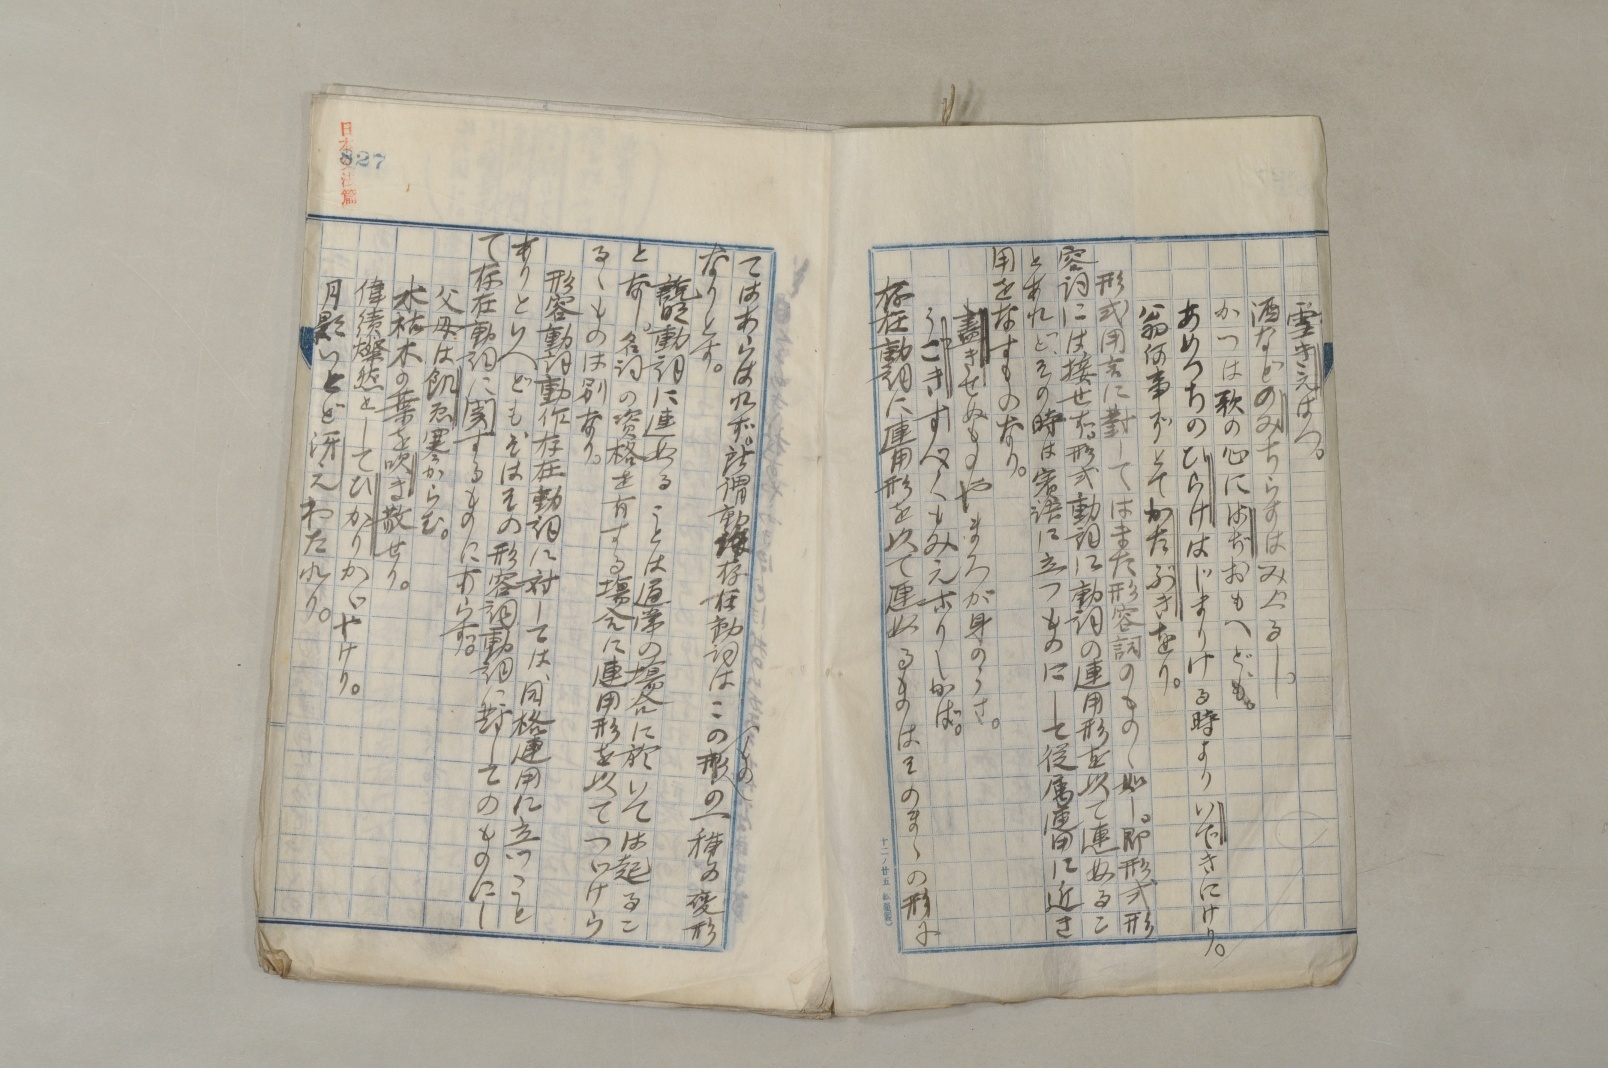 雪きえばへ。
酒などのみちらすはみぐるし。
かつは歌の心にはぢおもへども。
あめつちのひらけはじまりける時よりいできにけり。
翁何事ぞとてかたぶきをり。
形式用言に對してはまた形容詞のものゝ如し。即形式形
容詞には接せず。形式動詞に動詞の連用形を以て連ぬるこ
とあれど、その時は客語に立つものにして從属連用に近き
用をなすものなり。
書きせぬものやまろが身のうさ。
うごきすべくもみえざりしかば。
存在動詞に連用形を以て連ぬるものはそのまゝの形に
てはあらはれず。所謂動作存在動詞はこの形のものの一種の変形
なりとす。
説明動詞に連ぬることは通常の場合に於いては起るこ
となし。名詞の資格を有する場合に連用形を以てつゞけら
るゝものは別なり。
形容動詞動作存在動詞に対しては、同格連用に立つこと
ありといへどもそはその形容詞動詞に對してのものにし
て存在動詞に関するものにあらず。
父母は飢ゑ寒からむ。
水枯木の葉を吹き散せり。
偉績燦然としてひかりかゞやけり。
月影いとど冴えわたれり。
日本文法篇
827